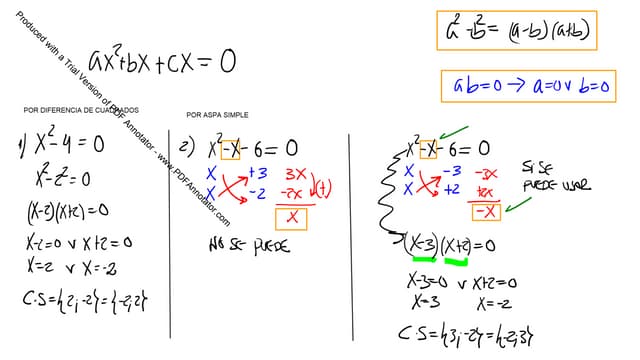 Produced with a Trial Version of PDF Annotator - www.PDFAnnotator.com
a²-b² = (a-b)(a+b)
ax²+bx+cx=0
ab=0 → a=0 v b=0
POR DIFERENCIA DE CUADRADOS
1) x²-4=0
x²-2²=0
(x-2)(x+2)=0
x-2=0 v x+2=0
x=2 v x=-2
C.S={2;-2}={-2;2}
POR ASPA SIMPLE
2) x²-x-6=0
x +3 3x
x -2 -2x (+)
x
NO SE PUEDE
x²-x-6=0
x -3 -3x
x +2 +2x
-x
SI SE
PUEDE USAR
(x-3)(x+2)=0
x-3=0 v x+2=0
x=3 x=-2
C.S={3;-2}={-2;3}